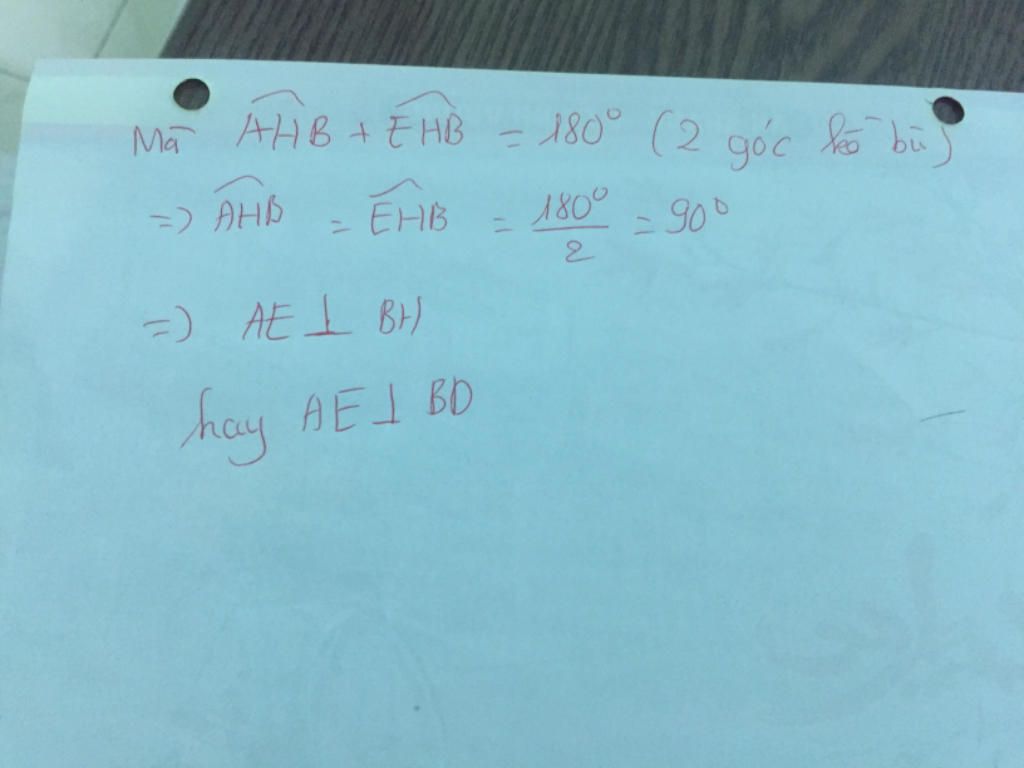 Mà AHB + EHB = 180° (2 góc kề bù)
=> AHB = EHB = 180°/2 = 90°
=> AE ⊥ BH
hay AE ⊥ BD